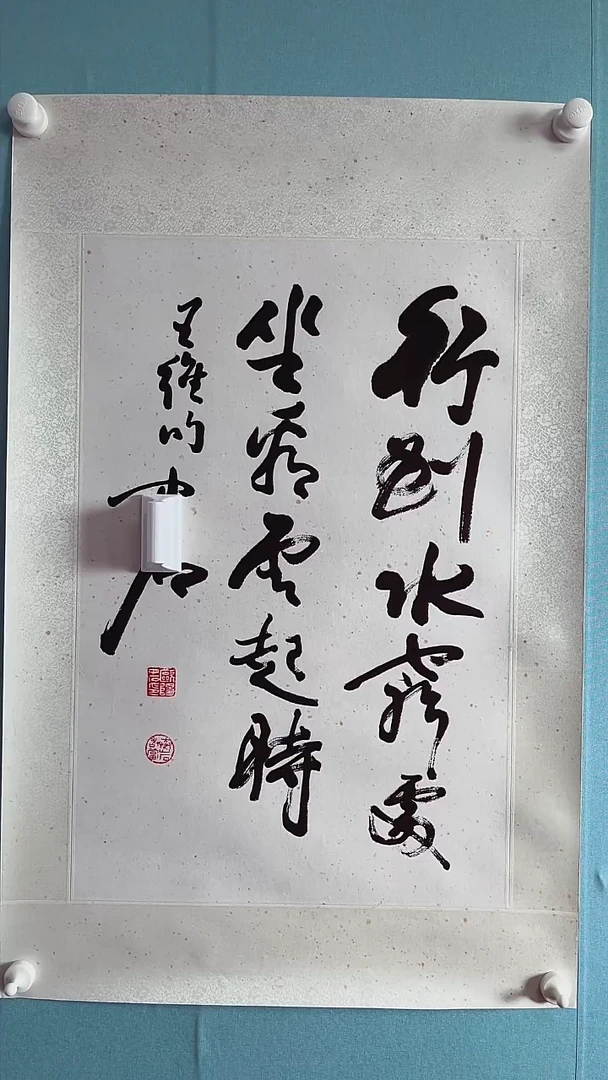 行到水窮處
坐看雲起時
王維句